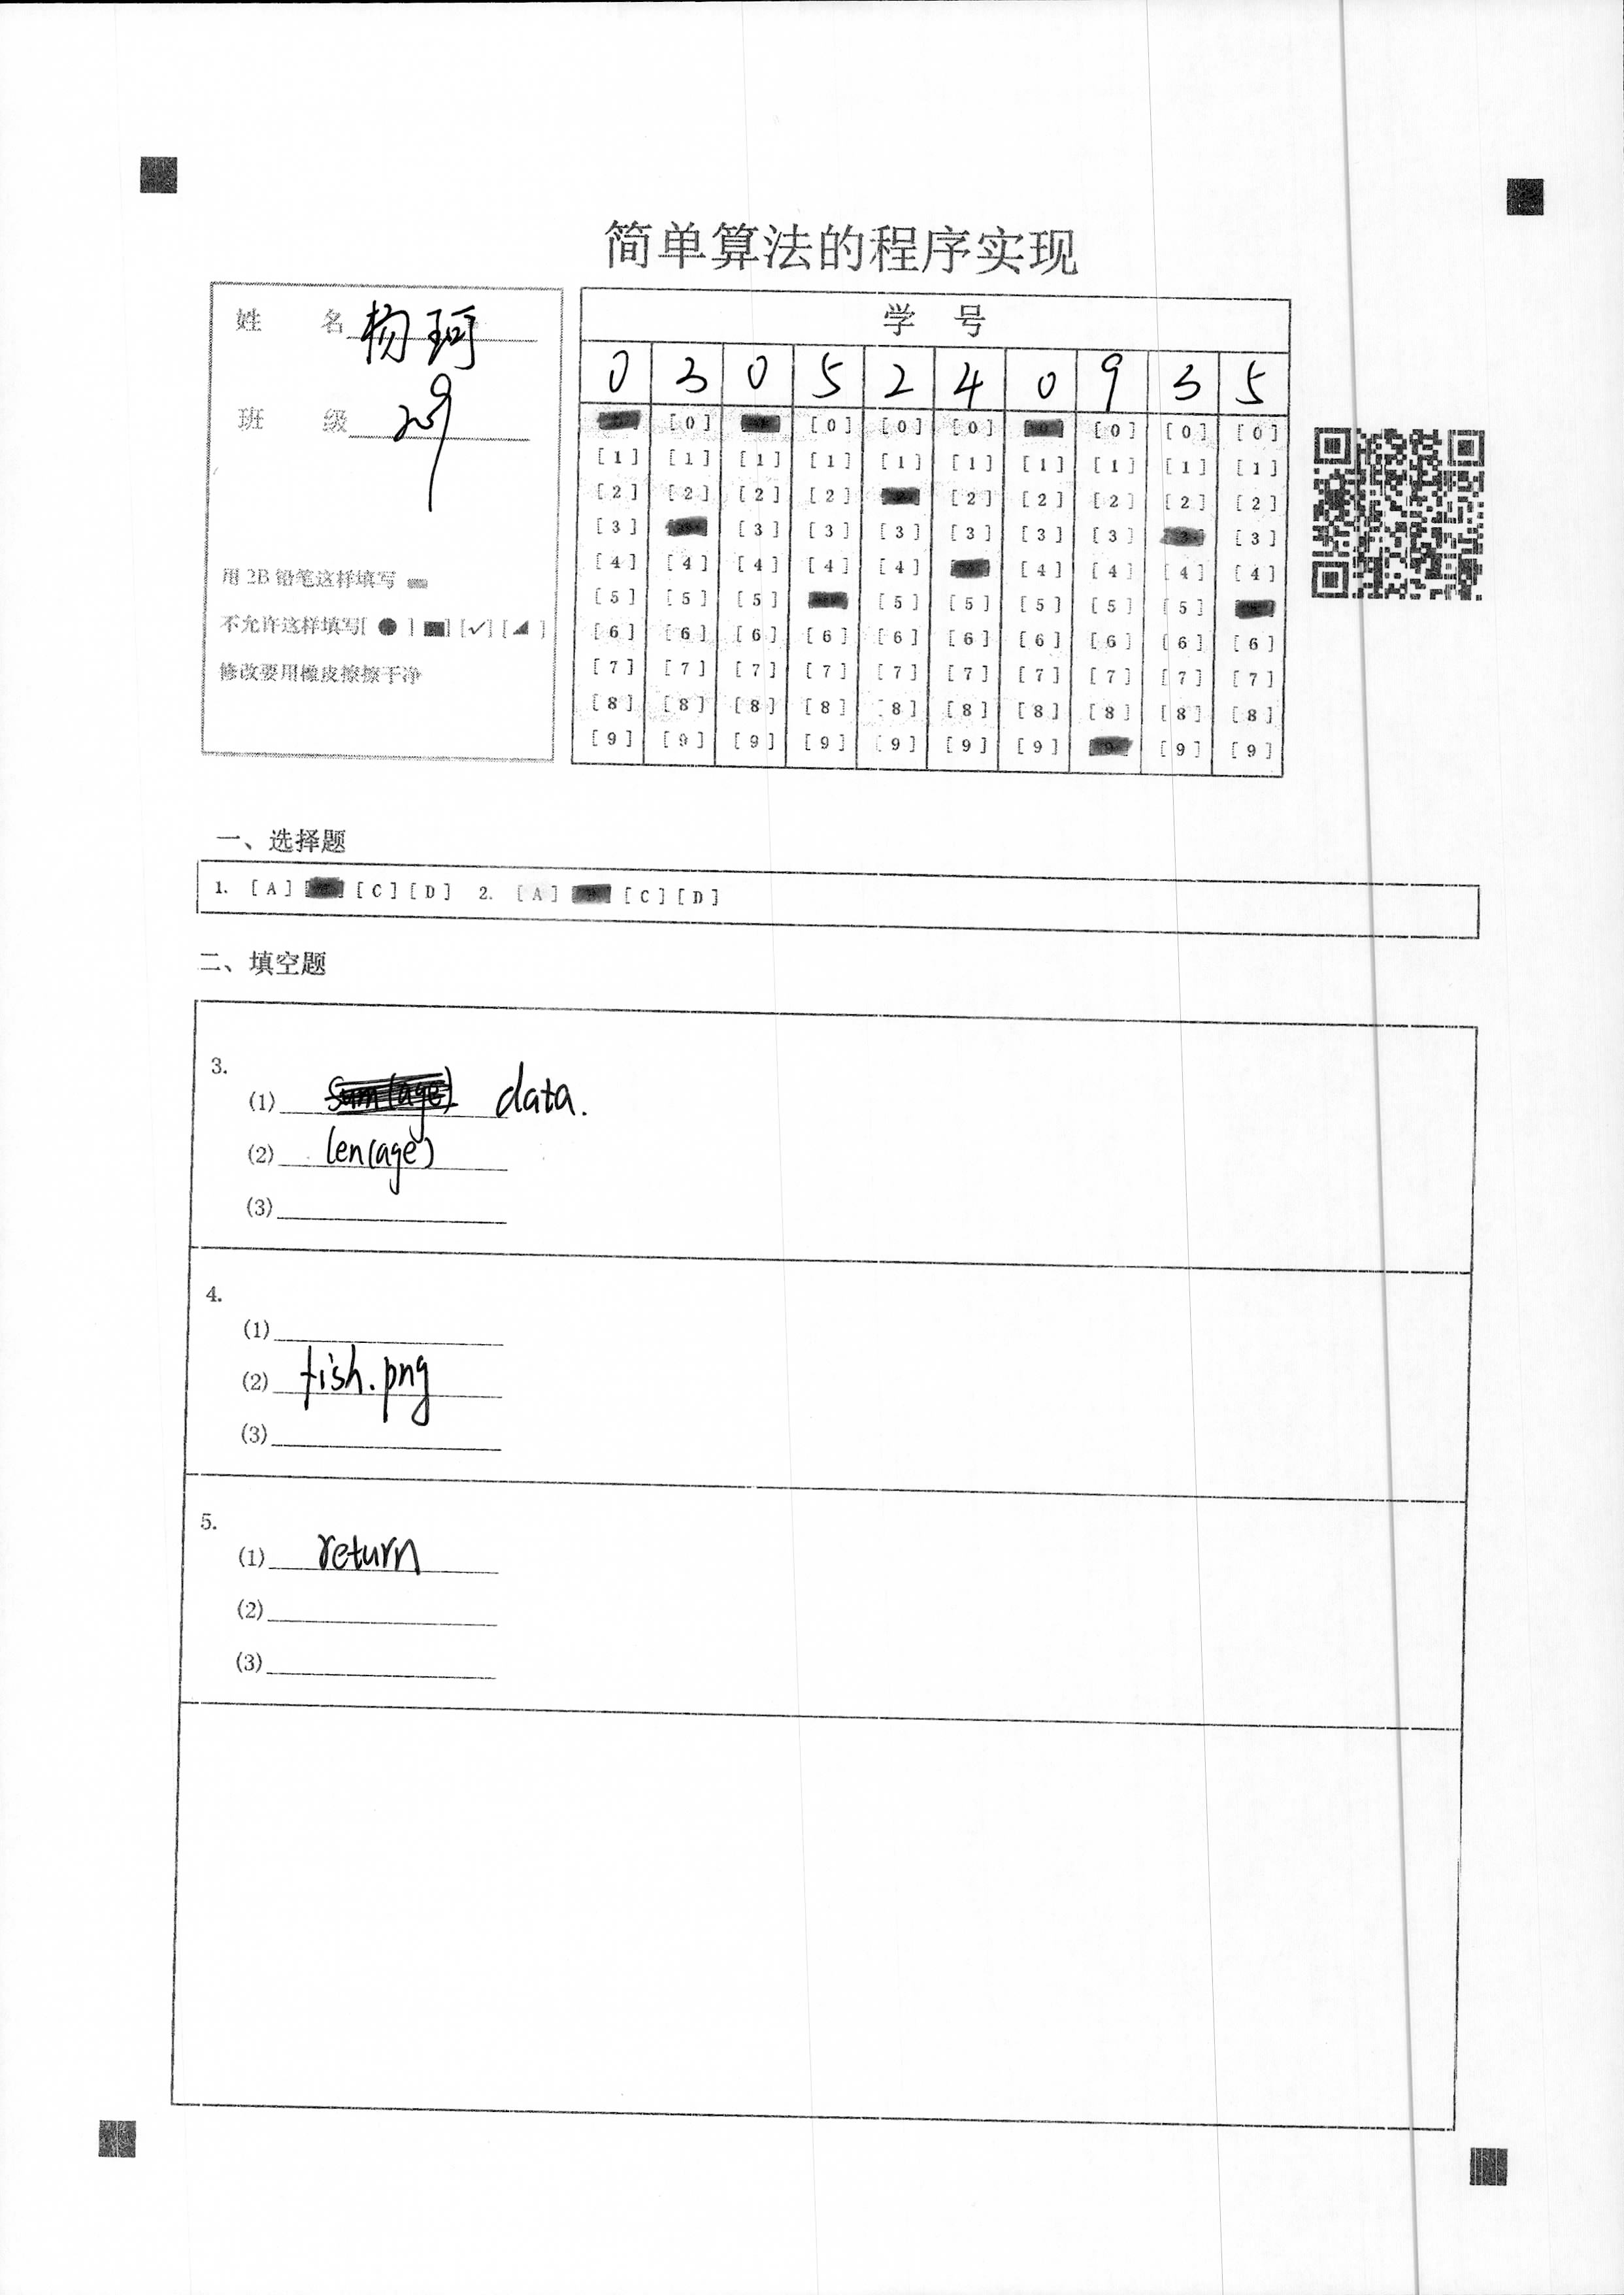 简单算法的程序实现
姓 名 杨珂
班 级 209
用 2B 铅笔这样填写
不允许这样填写[ ● ] [■] [✓] [◢ ]
修改要用橡皮擦擦干净
学 号
0 3 0 5 2 4 0 9 3 5
[0] [0] [0] [0] [0] [0] [0]
[1] [1] [1] [1] [1] [1] [1] [1] [1] [1]
[2] [2] [2] [2] [2] [2] [2] [2] [2]
[3] [3] [3] [3] [3] [3] [3] [3]
[4] [4] [4] [4] [4] [4] [4] [4] [4]
[5] [5] [5] [5] [5] [5] [5] [5]
[6] [6] [6] [6] [6] [6] [6] [6] [6] [6]
[7] [7] [7] [7] [7] [7] [7] [7] [7] [7]
[8] [8] [8] [8] [8] [8] [8] [8] [8] [8]
[9] [9] [9] [9] [9] [9] [9] [9] [9]
一、选择题
1. [A] [C] [D] 2. [A] [C] [D]
二、填空题
3.
(1) sum(age) data.
(2) len(age)
(3)
4.
(1)
(2) fish.png
(3)
5.
(1) return
(2)
(3)